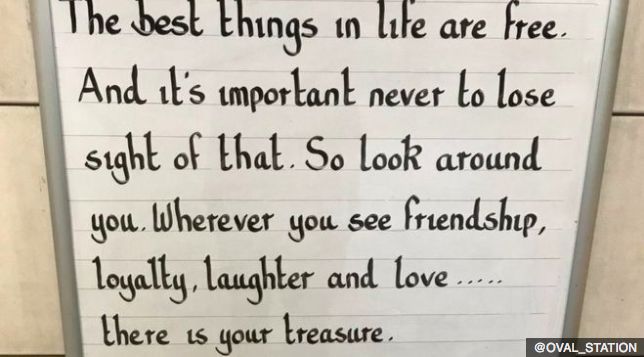 The best things in life are free.
And it's important never to lose
sight of that. So look around
you. Wherever you see friendship,
loyalty, laughter and love.....
there is your treasure.
@OVAL_STATION